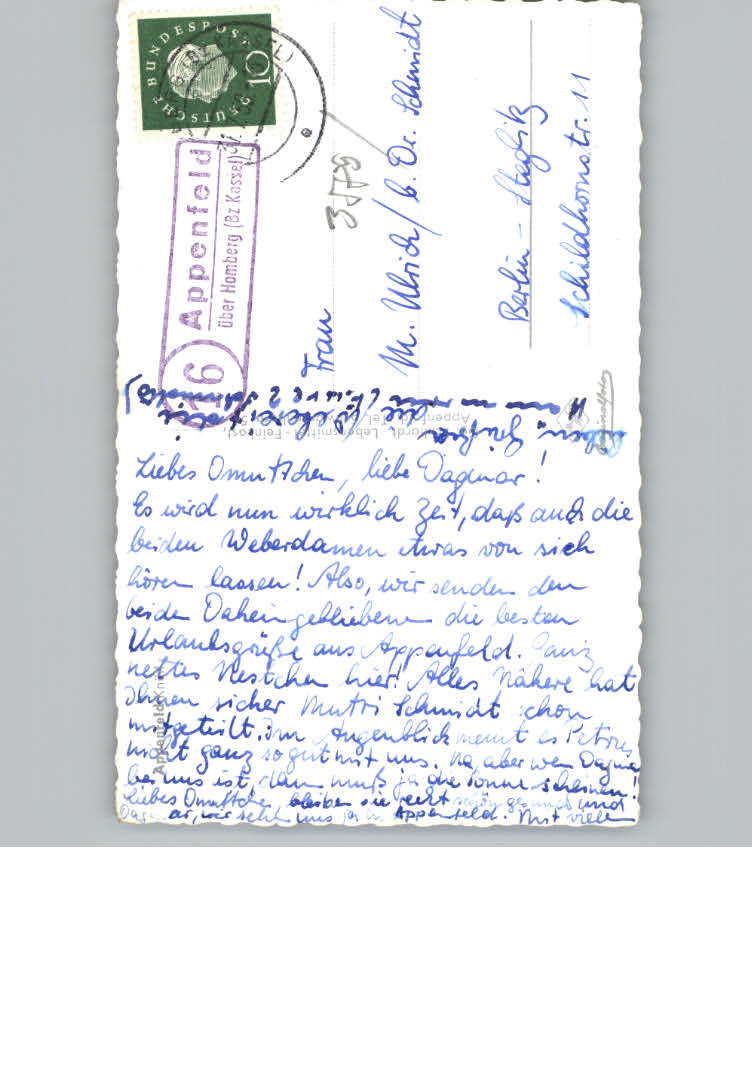 DEUTSCHE BUNDESPOST
10
16
Appenfeld
über Homberg (Bz Kassel)
3578
Frau
M. Ulrich / b. Dr. Schmidt
Berlin - Steglitz
Schildhornstr. 11
Liebes Omuttchen, liebe Dagmar!
Es wird nun wirklich Zeit, daß auch die
beiden Weberdamen etwas von sich
hören lassen! Also, wir senden den
beiden Daheimgebliebenen die besten
Urlaubsgrüße aus Appenfeld. Ganz
nettes Nestchen hier! Alles Nähere hat
Ihnen sicher Mutti Schmidt schon
mitgeteilt. Im Augenblick meint es Petrus
nicht ganz so gut mit uns. Na, aber wenn Dagmar
bei uns ist, dann muß ja die Sonne scheinen!
Liebes Omuttchen, bleiben sie recht schön gesund und
Dagmar, wir sehn uns ja in Appenfeld. Mit vielen
Grüßen
Lebensmittel - Feinkost
Appenfeld
Originalfoto